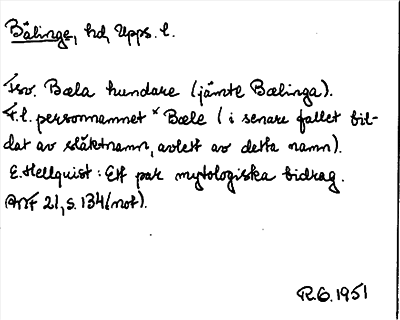 Bälinge, hd, Upps. l.
Fsv. Bæla hundare (jämte Bælinga).
F.l. personnamnet *Bæle (i senare fallet bil-
dat av släktnamn, avlett av detta namn).
E. Hellquist: Ett par mytologiska bidrag.
ANF 21, s. 134 (not).
R.G. 1951